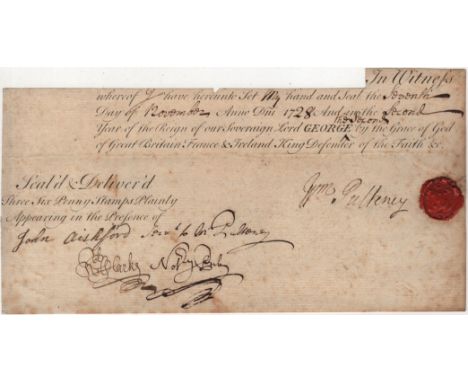 In Witness
whereof I have hereunto Set My hand and Seal the Seventh
Day of November Anno Dni 1728 And in the Second
Year of the Reign of our Sovereign Lord GEORGE the Second by the Grace of God
of Great Britain France & Ireland King Defender of the Faith &c.
Seal'd & Deliver'd
Three Six Penny Stamps Plainly
Appearing in the Presence of
Wm Pulteney
John Serv.t to Mr Pulteney
Clarke Not.y Pub